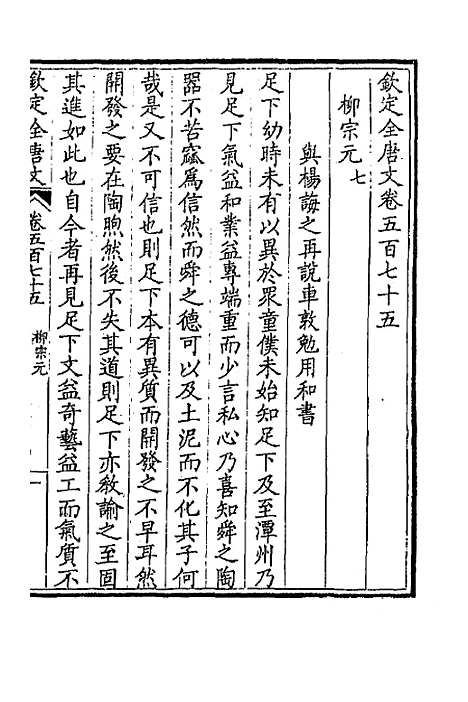 欽定全唐文卷五百七十五
柳宗元七
與楊誨之再說車敦勉用和書
足下幼時未有以異於眾童僕未始知足下及至潭州乃
見足下氣益和業益專端重而少言私心乃喜知舜之陶
器不苦窳為信然而舜之德可以及土泥而不化其子何
哉是又不可信也則足下本有異質而開發之不早耳然
開發之要在陶煦然後不失其道則足下亦敎諭之至固
其進如此也自今者再見足下文益奇藝益工而氣質不
欽定全唐文 卷五百七十五 柳宗元 一